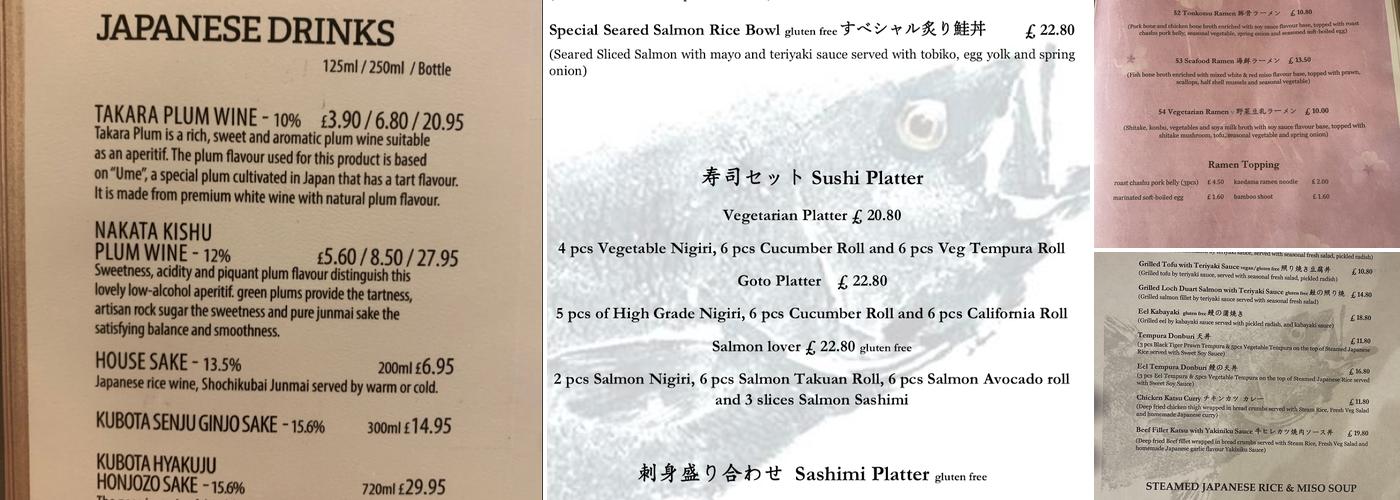 JAPANESE DRINKS
125ml / 250ml / Bottle
TAKARA PLUM WINE - 10% £3.90 / 6.80 / 20.95
Takara Plum is a rich, sweet and aromatic plum wine suitable
as an aperitif. The plum flavour used for this product is based
on "Ume", a special plum cultivated in Japan that has a tart flavour.
It is made from premium white wine with natural plum flavour.
NAKATA KISHU
PLUM WINE - 12% £5.60 / 8.50 / 27.95
Sweetness, acidity and piquant plum flavour distinguish this
lovely low-alcohol aperitif. green plums provide the tartness,
artisan rock sugar the sweetness and pure junmai sake the
satisfying balance and smoothness.
HOUSE SAKE - 13.5% 200ml £6.95
Japanese rice wine, Shochikubai Junmai served by warm or cold.
KUBOTA SENJU GINJO SAKE - 15.6% 300ml £14.95
KUBOTA HYAKUJU
HONJOZO SAKE - 15.6% 720ml £29.95
Special Seared Salmon Rice Bowl gluten free すべシャル炙り鮭丼 £ 22.80
(Seared Sliced Salmon with mayo and teriyaki sauce served with tobiko, egg yolk and spring
onion)
寿司セット Sushi Platter
Vegetarian Platter £ 20.80
4 pcs Vegetable Nigiri, 6 pcs Cucumber Roll and 6 pcs Veg Tempura Roll
Goto Platter £ 22.80
5 pcs of High Grade Nigiri, 6 pcs Cucumber Roll and 6 pcs California Roll
Salmon lover £ 22.80 gluten free
2 pcs Salmon Nigiri, 6 pcs Salmon Takuan Roll, 6 pcs Salmon Avocado roll
and 3 slices Salmon Sashimi
刺身盛り合わせ Sashimi Platter gluten free
52 Tonkotsu Ramen 豚骨ラーメン £ 10.80
(Pork bone and chicken bone broth enriched with soy sauce flavour base, topped with roast
chashu pork belly, seasonal vegetable, spring onion and seasoned soft-boiled egg)
53 Seafood Ramen 海鮮ラーメン £ 13.50
(Fish bone broth enriched with mixed white & red miso flavour base, topped with prawn,
scallops, half shell mussels and seasonal vegetable)
54 Vegetarian Ramen v 野菜豆乳ラーメン £ 10.00
(Shitake, konbu, vegetables and soya milk broth with soy sauce flavour base, topped with
shitake mushroom, tofu, seasonal vegetable and spring onion)
Ramen Topping
roast chashu pork belly (3pcs) £ 4.50 kaedama ramen noodle £ 2.00
marinated soft-boiled egg £ 1.60 bamboo shoot £ 1.60
Grilled Tofu with Teriyaki Sauce vegan/gluten free 照り焼き豆腐丼 £ 10.80
(Grilled tofu by teriyaki sauce, served with seasonal fresh salad, pickled radish)
Grilled Loch Duart Salmon with Teriyaki Sauce gluten free 鮭の照り焼 £ 14.80
(Grilled salmon fillet by teriyaki sauce served with seasonal fresh salad)
Eel Kabayaki gluten free 鰻の蒲焼き £ 18.80
(Grilled eel by kabayaki sauce served with pickled radish, and kabayaki sauce)
Tempura Donburi 天丼 £ 11.80
(3 pcs Black Tiger Prawn Tempura & 5pcs Vegetable Tempura on the top of Steamed Japanese
Rice served with Sweet Soy Sauce)
Eel Tempura Donburi 鰻の天丼 £ 16.80
(3 pcs Eel Tempura & 5pcs Vegetable Tempura on the top of Steamed Japanese Rice served
with Sweet Soy Sauce)
Chicken Katsu Curry チキンカツ カレー £ 11.80
(Deep fried chicken thigh wrapped in bread crumbs served with Steam Rice, Fresh Veg Salad
and homemade Japanese curry)
Beef Fillet Katsu with Yakiniku Sauce 牛ヒレカツ焼肉ソース丼 £ 19.80
(Deep fried Beef fillet wrapped in bread crumbs served with Steam Rice, Fresh Veg Salad and
homemade Japanese garlic flavour Yakiniku Sauce)
STEAMED JAPANESE RICE & MISO SOUP